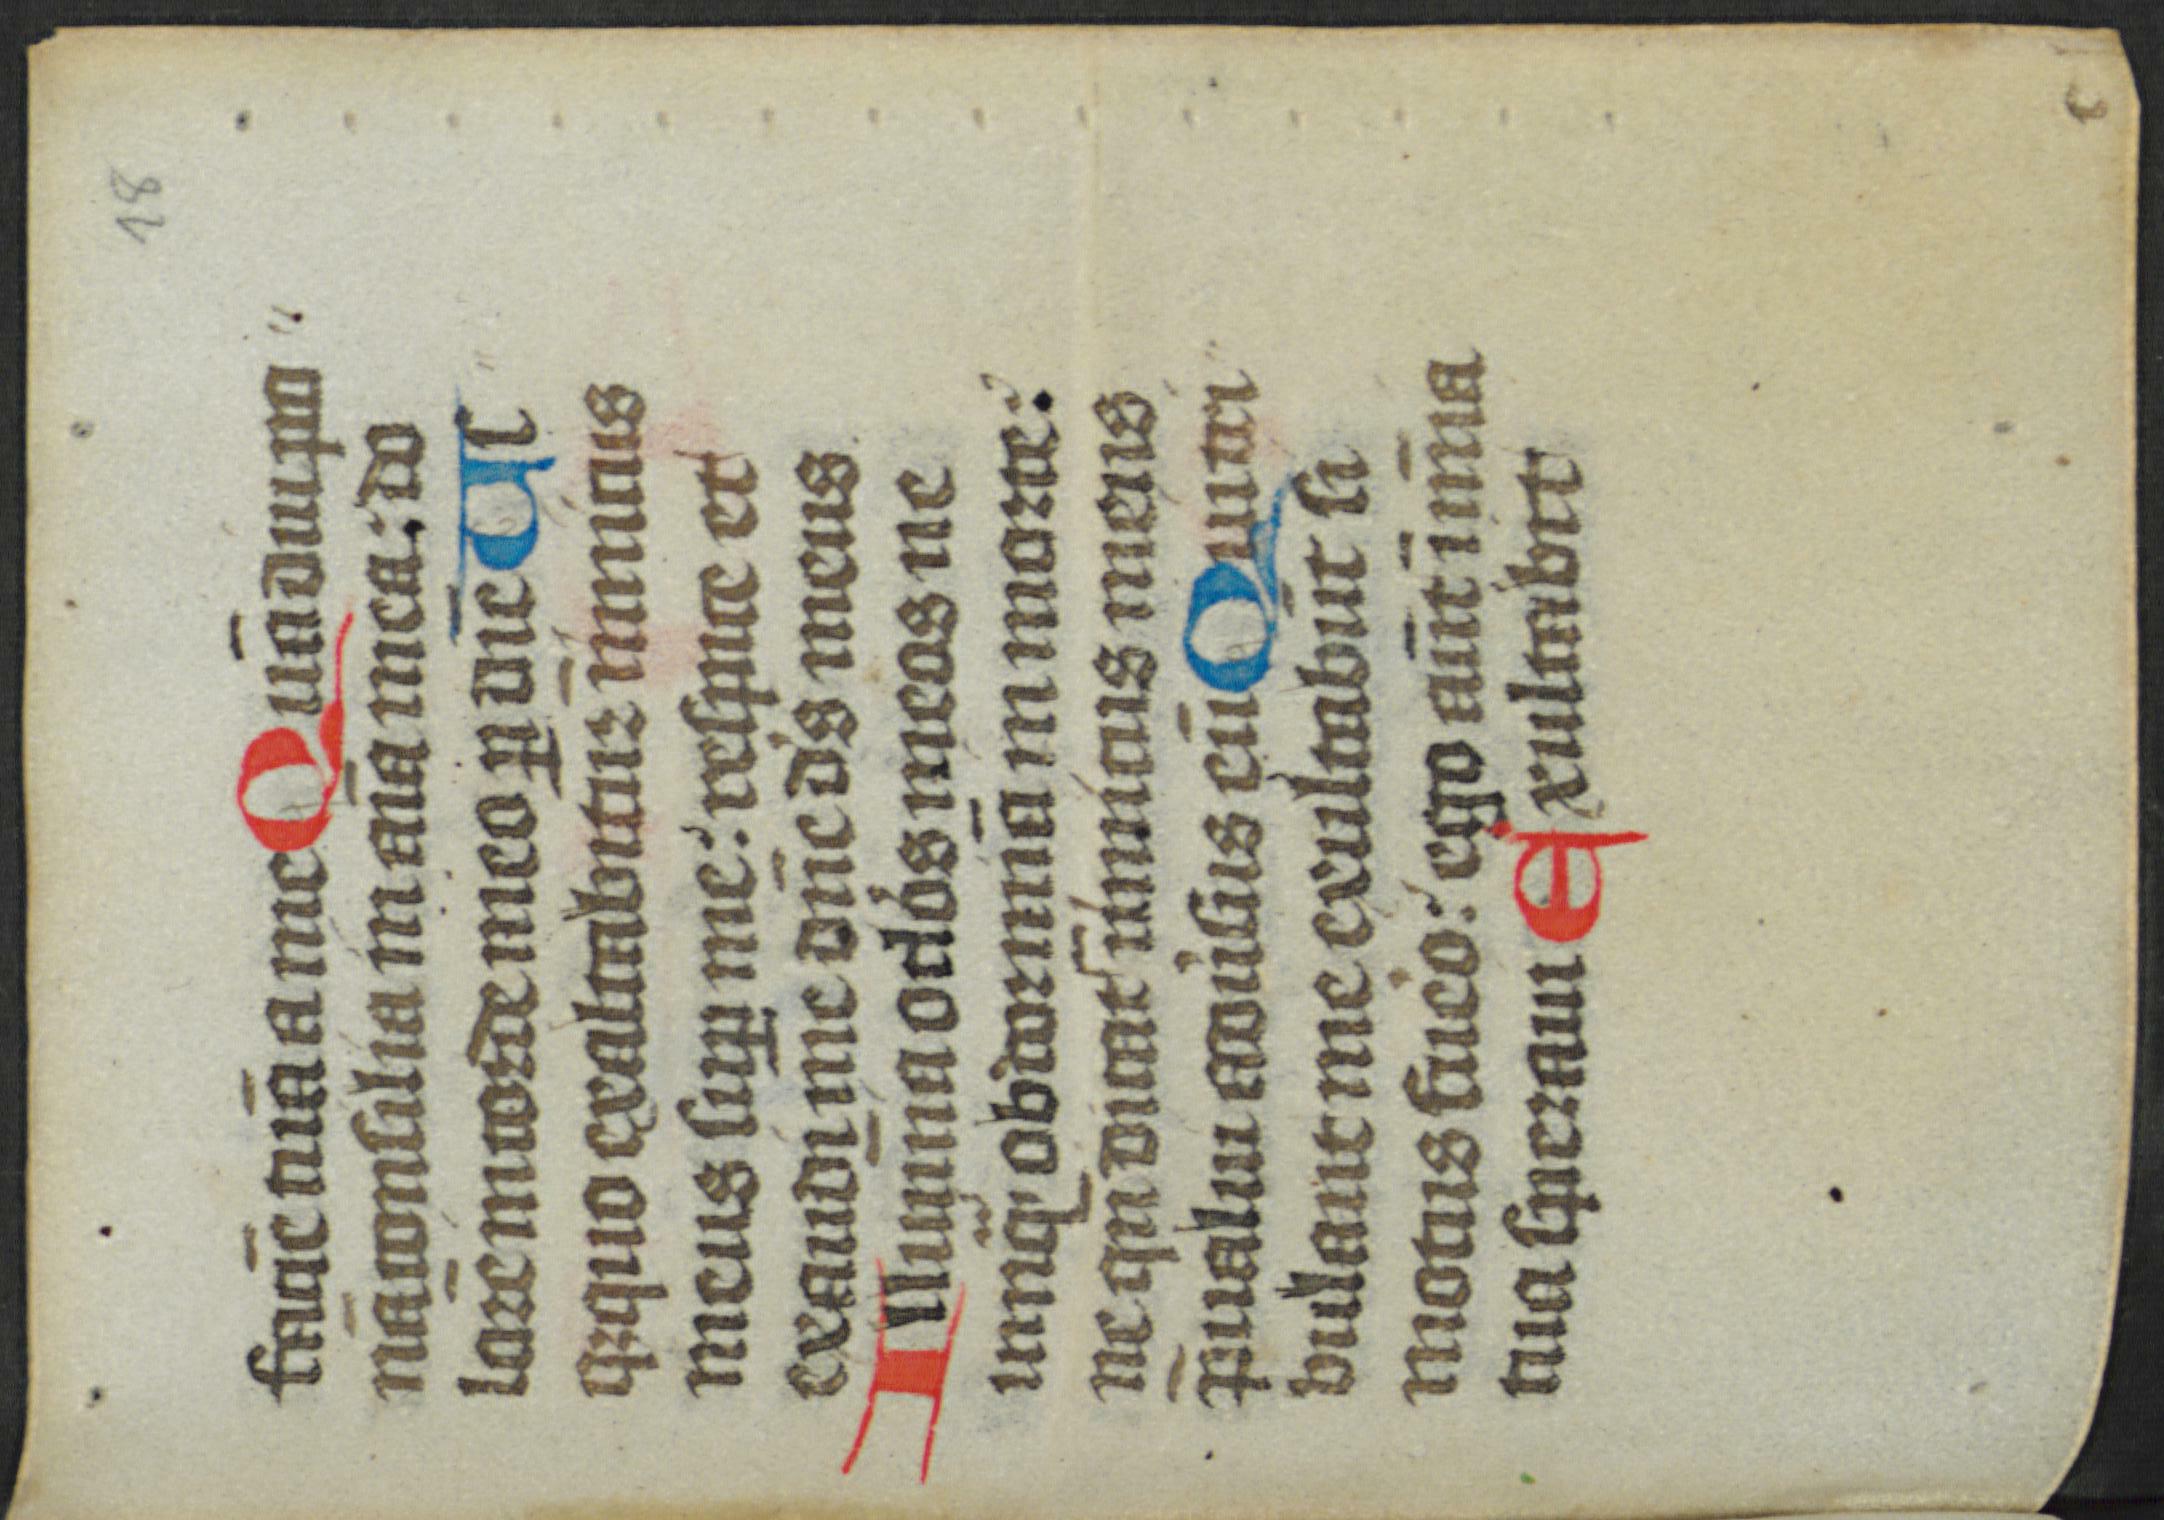 18
faciē tuā a me Quādiu po
nā ꝯsilia in aīa mea: do
lorē in corde meo ꝑ diē Us
qꝫquo exaltabitur inimicus
meus suꝑ me: respice et
exaudi me dn̄e ds̄ meus
Illumina oclos meos ne
unq̄ obdormiā in morte:
ne qn̄ dicat inimicus meus
p̄ualui aduīsus eū Qui tri
bulant me exultabūt si
motus fuero: ego aūt in mīa
tua speraui Exultabit